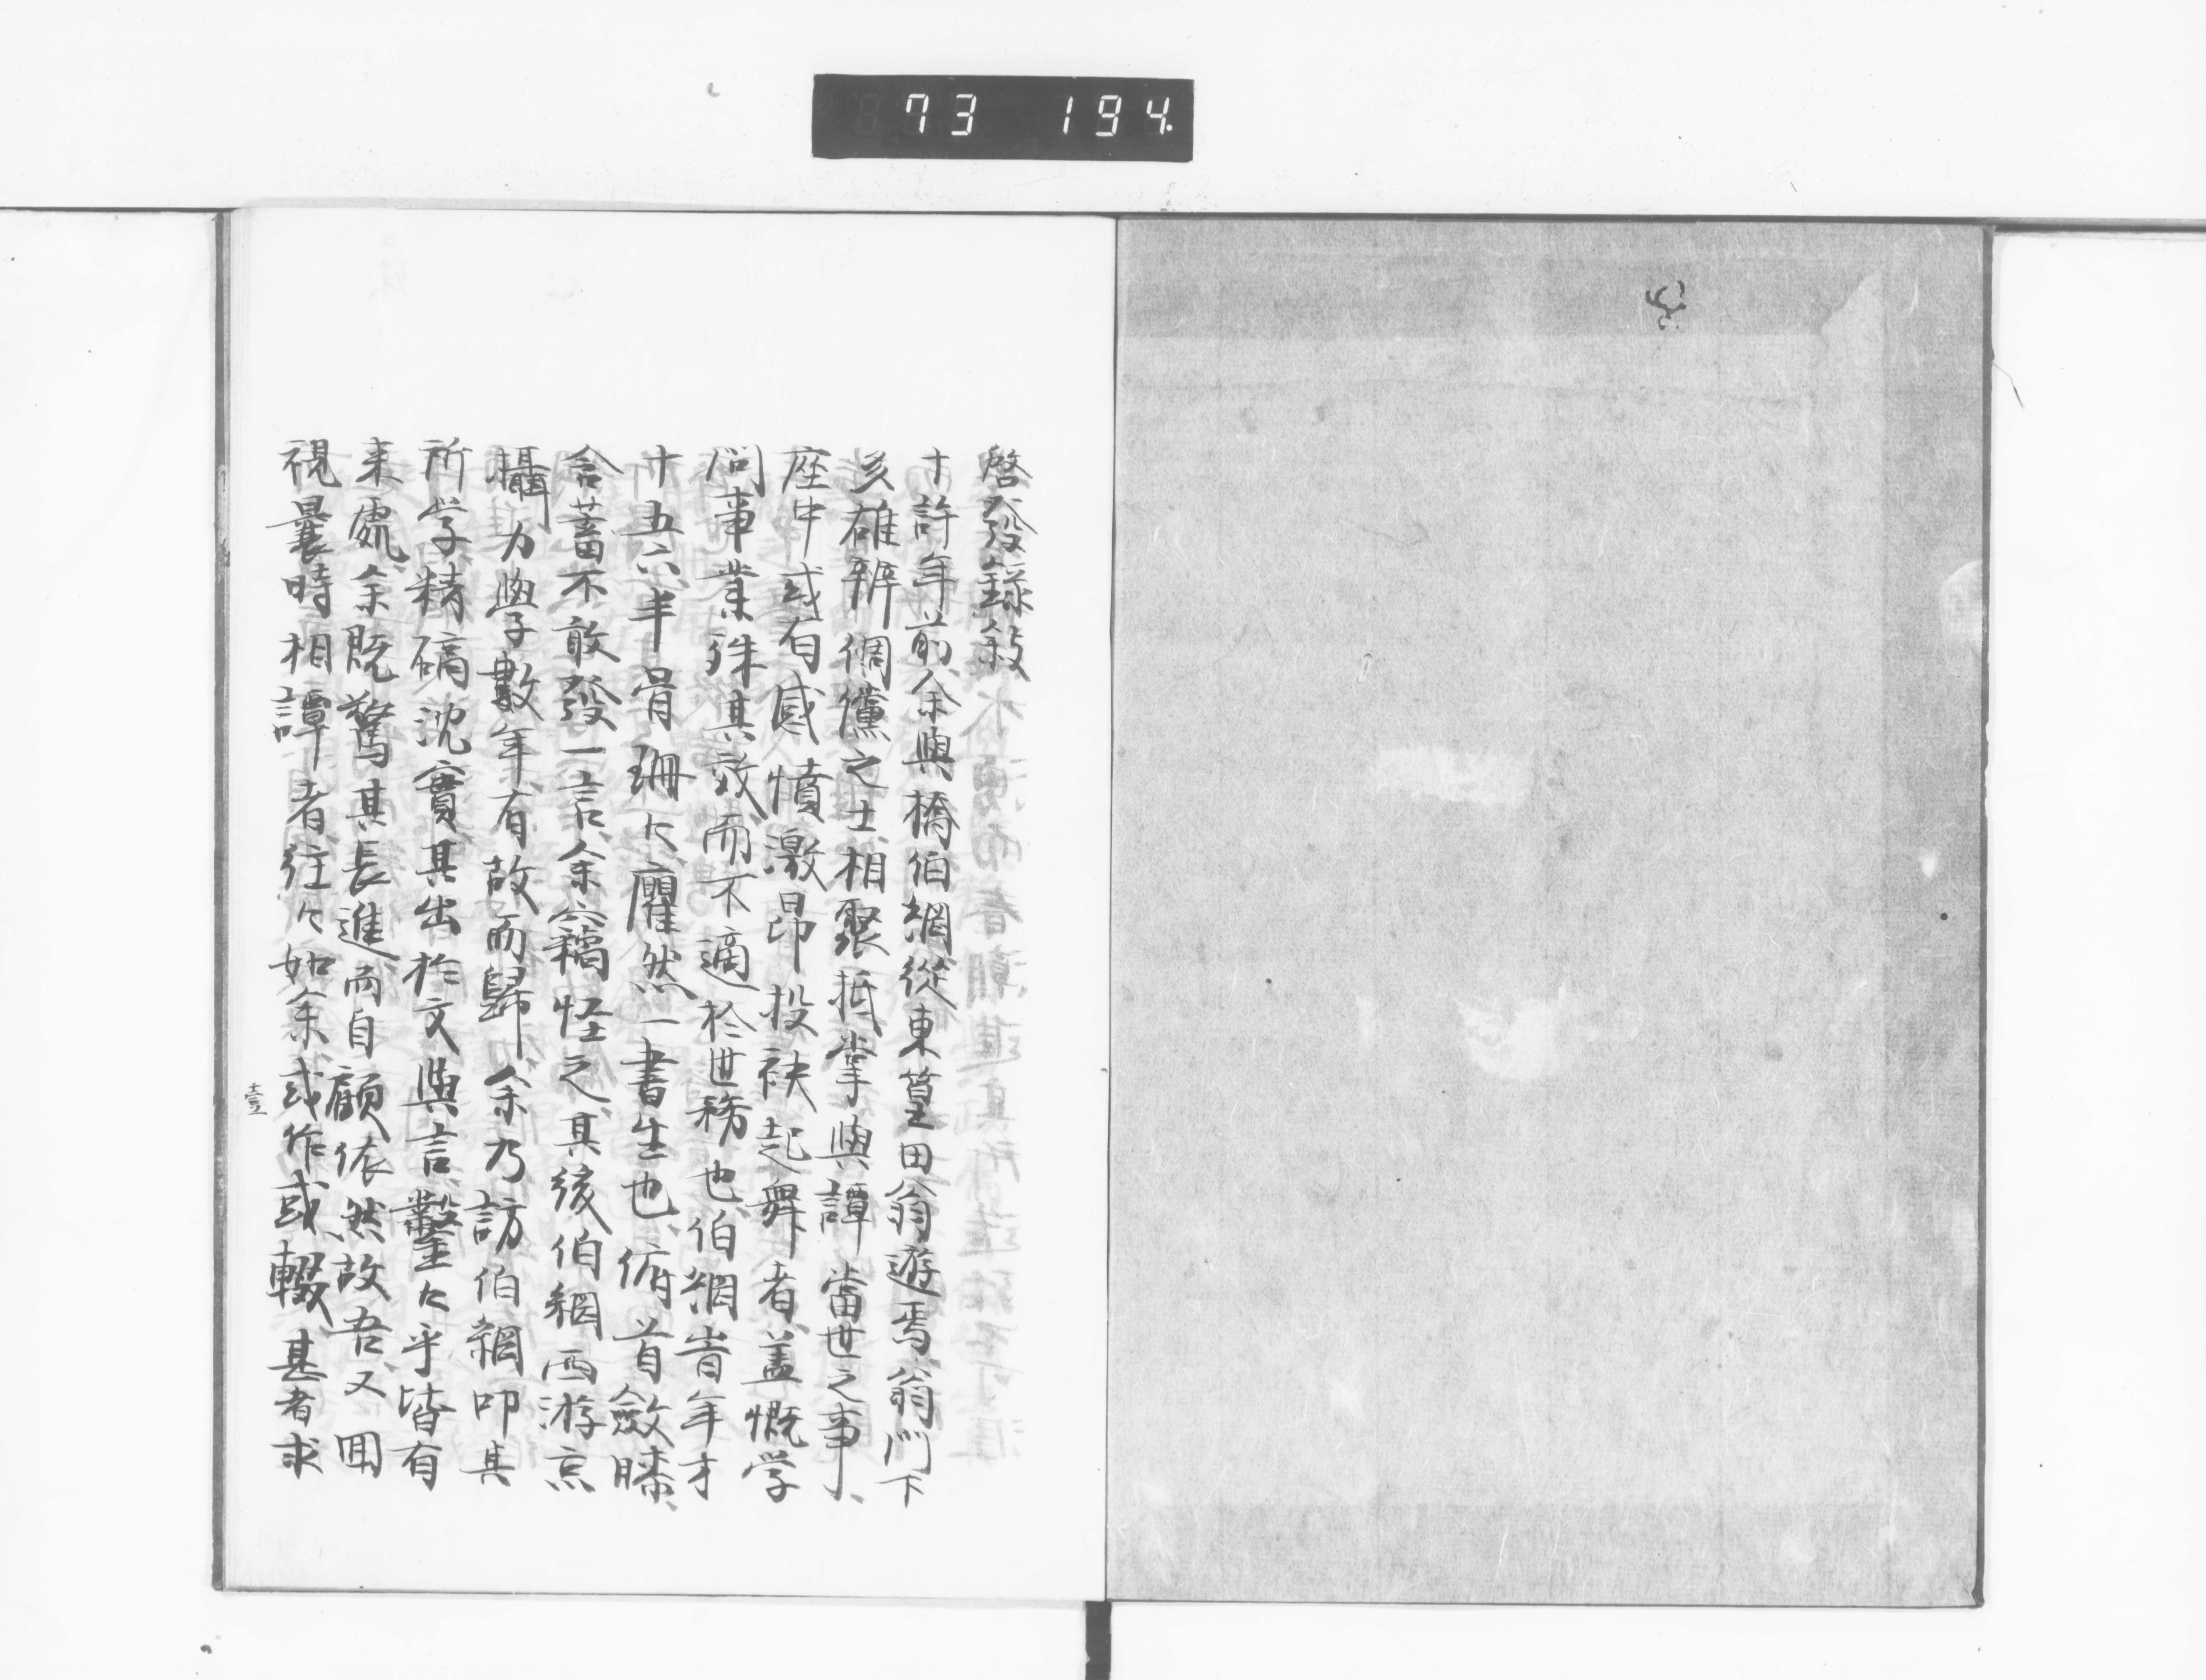 73 194
啓發錄敍
十許年前余與橋伯綱從東篁田翁遊焉翁門下
多雄辨倜儻之士相聚抵掌與譚當世之事
座中或有感憤激昂投袂起舞者盖慨学
問事業殊其效而不適於世務也伯綱峕年才
十五六半骨珊々癯然一書生也俯首斂膝
含蓄不敢發一言余竊怪之其後伯綱西游京
攝力學數年有故而歸余乃訪伯綱叩其
所学精礭沈實其出於文與言鑿々乎皆有
来處余既驚其長進而自顧依然故吾又囬
視曩時相譚者往々如余或作或輟甚者求
壹